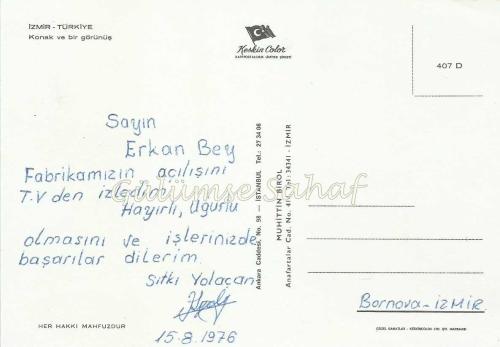 İZMİR - TÜRKİYE
Konak ve bir görünüş
Keskin Color
KARTPOSTALCILIK LİMİTED ŞİRKETİ
407 D
Sayın
Erkan Bey
Fabrikamızın açılışını
T.V den izledim.
Hayırlı, Uğurlu
olmasını ve işlerinizde
başarılar dilerim.
Sıtkı Yolaçan
15.8.1976
Gülümse Sahaf
Ankara Caddesi, No. 98 — İSTANBUL Tel.: 27 34 08
MUHİTTİN BİROL
Anafartalar Cad. No. Tel: 34341 - İZMİR
Bornova-İZMİR
HER HAKKI MAHFUZDUR